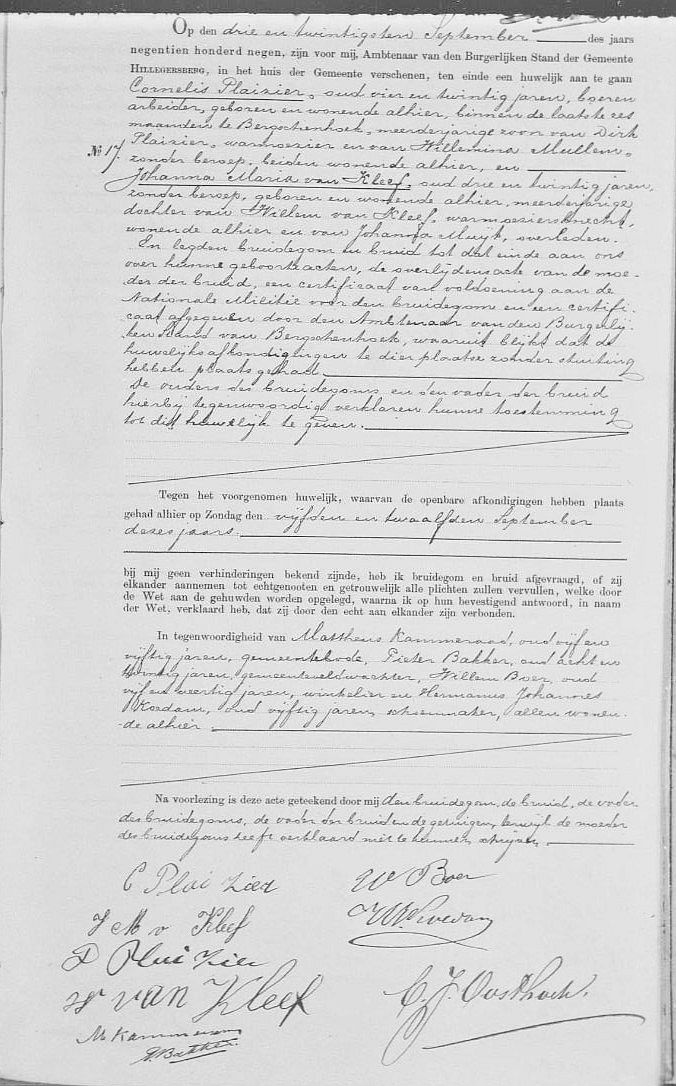 Op den drie en twintigsten September des jaars
negentien honderd negen, zijn voor mij, Ambtenaar van den Burgerlijken Stand der Gemeente
Hillegersberg, in het huis der Gemeente verschenen, ten einde een huwelijk aan te gaan
Cornelis Plaizier, oud vier en twintig jaren, boeren
arbeider, geboren en wonende alhier, binnen de laatste zes
maanden te Bergschenhoek, meerderjarige zoon van Dirk
Plaizier, warmoezier en van Willemina Mullem,
No 17.
zonder beroep, beiden wonende alhier, en
Johanna Maria van Kleef, oud drie en twintig jaren,
zonder beroep, geboren en wonende alhier, meerderjarige
dochter van Willem van Kleef, warmoeziersknecht,
wonende alhier en van Johanna Muijt, overleden.
En legden bruidegom en bruid tot dat einde aan ons
over hunne geboorteacten, de overlijdensacte van de moe-
der der bruid, een certificaat van voldoening aan de
Nationale Militie voor den bruidegom en een certifi-
caat afgegeven door den Ambtenaar van den Burgerlij-
ken Stand van Bergschenhoek, waaruit blijkt dat de
huwelijksafkondigingen te dier plaatse zonder stuiting
hebben plaats gehad
De ouders des bruidegoms en den vader der bruid
hierbij tegenwoordig verklaren hunne toestemming
tot dit huwelijk te geven.
Tegen het voorgenomen huwelijk, waarvan de openbare afkondigingen hebben plaats
gehad alhier op Zondag den vijfden en twaalfden September
dezes jaars.
bij mij geen verhinderingen bekend zijnde, heb ik bruidegom en bruid afgevraagd, of zij
elkander aannemen tot echtgenooten en getrouwelijk alle plichten zullen vervullen, welke door
de Wet aan de gehuwden worden opgelegd, waarna ik op hun bevestigend antwoord, in naam
der Wet, verklaard heb, dat zij door den echt aan elkander zijn verbonden.
In tegenwoordigheid van Mattheus Kammeraad, oud vijf en
vijftig jaren, gemeentebode, Pieter Bakker, oud acht en
twintig jaren, gemeenteveldwachter, Willem Boer, oud
vijf en veertig jaren, winkelier en Hermanus Johannes
Koedam, oud vijftig jaren, schoenmaker, allen wonen-
de alhier
Na voorlezing is deze acte geteekend door mij den bruidegom, de bruid, de vader
des bruidegoms, de vader der bruid en de getuigen, terwijl de moeder
des bruidegoms heeft verklaard niet te kunnen schrijven,
C Plaizier
W Boer
J M v Kleef
D Plaizier
W van Kleef
C. J. Oosthoek.
M Kammeraad
P. Bakker